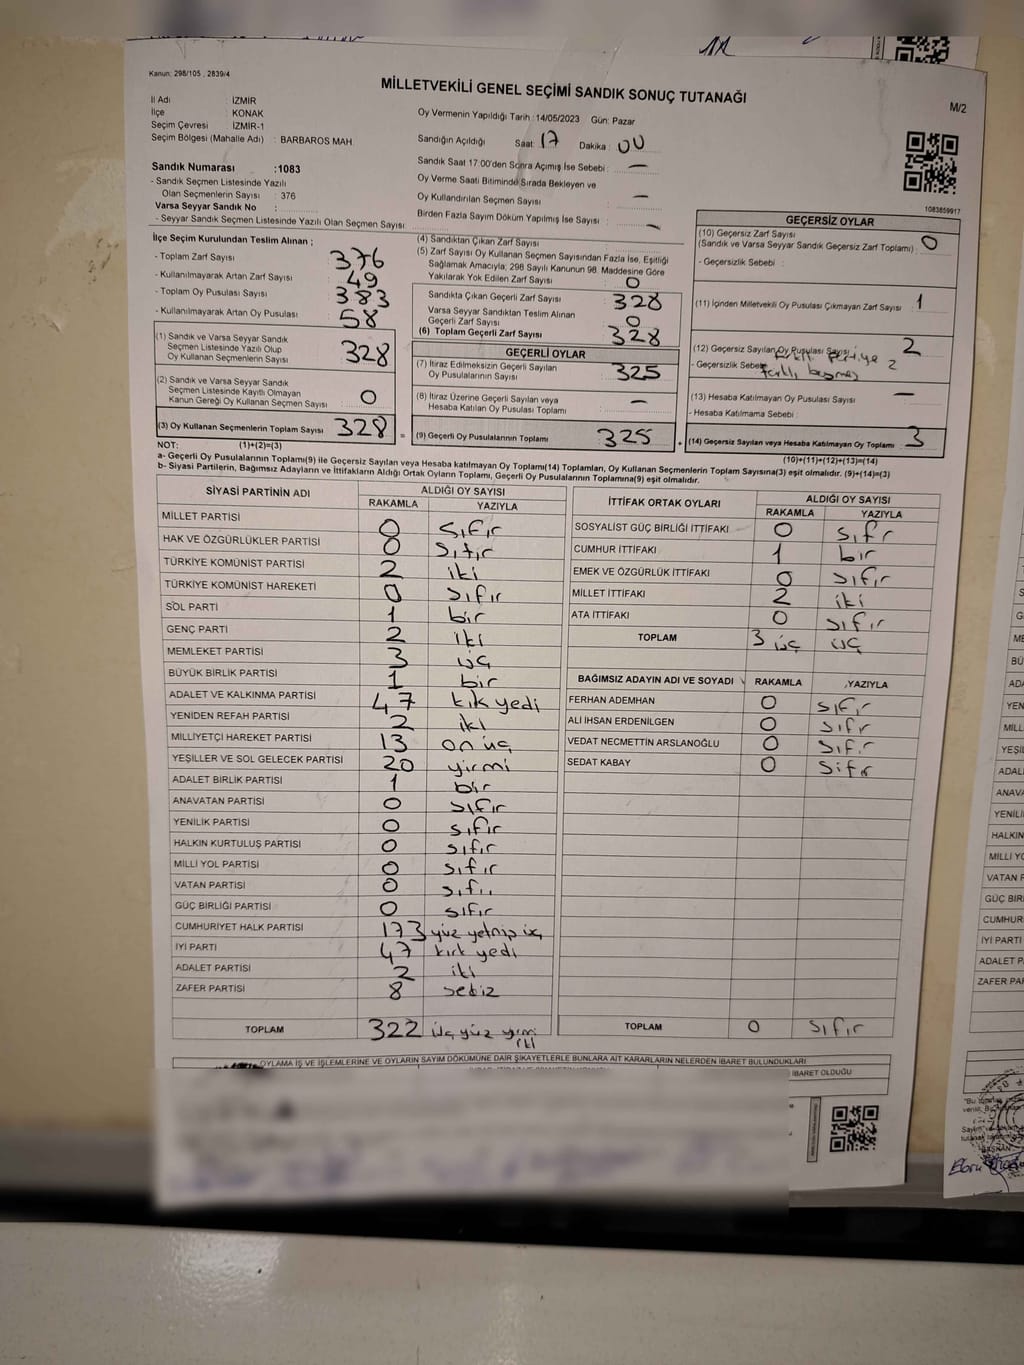 Kanun: 298/105 , 2839/4
MİLLETVEKİLİ GENEL SEÇİMİ SANDIK SONUÇ TUTANAĞI
M/2
İl Adı : İZMİR
İlçe : KONAK
Seçim Çevresi : İZMİR-1
Seçim Bölgesi (Mahalle Adı) : BARBAROS MAH.
Oy Vermenin Yapıldığı Tarih : 14/05/2023 Gün: Pazar
Sandığın Açıldığı Saat: 17 Dakika : 00
Sandık Saat 17:00'den Sonra Açımış İse Sebebi : —
Oy Verme Saati Bitiminde Sırada Bekleyen ve
Oy Kullandırılan Seçmen Sayısı : —
Birden Fazla Sayım Döküm Yapılmış İse Sayısı : —
Sandık Numarası :1083
- Sandık Seçmen Listesinde Yazılı
Olan Seçmenlerin Sayısı : 376
Varsa Seyyar Sandık No :
- Seyyar Sandık Seçmen Listesinde Yazılı Olan Seçmen Sayısı:
1083859917
İlçe Seçim Kurulundan Teslim Alınan ;
- Toplam Zarf Sayısı : 376
- Kullanılmayarak Artan Zarf Sayısı : 49
- Toplam Oy Pusulası Sayısı : 383
- Kullanılmayarak Artan Oy Pusulası : 58
(1) Sandık ve Varsa Seyyar Sandık
Seçmen Listesinde Yazılı Olup
Oy Kullanan Seçmenlerin Sayısı : 328
(2) Sandık ve Varsa Seyyar Sandık
Seçmen Listesinde Kayıtlı Olmayan
Kanun Gereği Oy Kullanan Seçmen Sayısı : 0
(3) Oy Kullanan Seçmenlerin Toplam Sayısı : 328
(4) Sandıktan Çıkan Zarf Sayısı :
(5) Zarf Sayısı Oy Kullanan Seçmen Sayısından Fazla İse, Eşitliği
Sağlamak Amacıyla, 298 Sayılı Kanunun 98. Maddesine Göre
Yakılarak Yok Edilen Zarf Sayısı : 0
Sandıkta Çıkan Geçerli Zarf Sayısı : 328
Varsa Seyyar Sandıktan Teslim Alınan
Geçerli Zarf Sayısı : 0
(6) Toplam Geçerli Zarf Sayısı : 328
GEÇERLİ OYLAR
(7) İtiraz Edilmeksizin Geçerli Sayılan
Oy Pusulalarının Sayısı : 325
(8) İtiraz Üzerine Geçerli Sayılan veya
Hesaba Katılan Oy Pusulası Toplamı : —
= (9) Geçerli Oy Pusulalarının Toplamı : 325
GEÇERSİZ OYLAR
(10) Geçersiz Zarf Sayısı
(Sandık ve Varsa Seyyar Sandık Geçersiz Zarf Toplamı) : 0
- Geçersizlik Sebebi :
(11) İçinden Milletvekili Oy Pusulası Çıkmayan Zarf Sayısı : 1
(12) Geçersiz Sayılan Oy Pusulası Sayısı : 2
- Geçersizlik Sebebi
(13) Hesaba Katılmayan Oy Pusulası Sayısı : —
- Hesaba Katılmama Sebebi :
+ (14) Geçersiz Sayılan veya Hesaba Katılmayan Oy Toplamı : 3
NOT: (1)+(2)=(3) (10)+(11)+(12)+(13)=(14)
a- Geçerli Oy Pusulalarının Toplamı(9) ile Geçersiz Sayılan veya Hesaba katılmayan Oy Toplamı(14) Toplamları, Oy Kullanan Seçmenlerin Toplam Sayısına(3) eşit olmalıdır. (9)+(14)=(3)
b- Siyasi Partilerin, Bağımsız Adayların ve İttifakların Aldığı Ortak Oyların Toplamı, Geçerli Oy Pusulalarının Toplamına(9) eşit olmalıdır.
SİYASİ PARTİNİN ADI ALDIĞI OY SAYISI
RAKAMLA YAZIYLA
MİLLET PARTİSİ 0 sıfır
HAK VE ÖZGÜRLÜKLER PARTİSİ 0 sıfır
TÜRKİYE KOMÜNİST PARTİSİ 2 iki
TÜRKİYE KOMÜNİST HAREKETİ 0 sıfır
SOL PARTİ 1 bir
GENÇ PARTİ 2 iki
MEMLEKET PARTİSİ 3 üç
BÜYÜK BİRLİK PARTİSİ 1 bir
ADALET VE KALKINMA PARTİSİ 47 kık yedi
YENİDEN REFAH PARTİSİ 2 iki
MİLLİYETÇİ HAREKET PARTİSİ 13 on üç
YEŞİLLER VE SOL GELECEK PARTİSİ 20 yirmi
ADALET BİRLİK PARTİSİ 1 bir
ANAVATAN PARTİSİ 0 sıfır
YENİLİK PARTİSİ 0 sıfır
HALKIN KURTULUŞ PARTİSİ 0 sıfır
MİLLİ YOL PARTİSİ 0 sıfır
VATAN PARTİSİ 0 sıfıı
GÜÇ BİRLİĞİ PARTİSİ 0 sıfır
CUMHURİYET HALK PARTİSİ 173 yüz yetmiş üç
İYİ PARTİ 47 kırk yedi
ADALET PARTİSİ 2 iki
ZAFER PARTİSİ 8 sekiz
TOPLAM 322 üç yüz yirmi
iki
İTTİFAK ORTAK OYLARI ALDIĞI OY SAYISI
RAKAMLA YAZIYLA
SOSYALİST GÜÇ BİRLİĞİ İTTİFAKI 0 sıfr
CUMHUR İTTİFAKI 1 bir
EMEK VE ÖZGÜRLÜK İTTİFAKI 0 sıfır
MİLLET İTTİFAKI 2 iki
ATA İTTİFAKI 0 sıfır
TOPLAM 3 üç üç
BAĞIMSIZ ADAYIN ADI VE SOYADI RAKAMLA YAZIYLA
FERHAN ADEMHAN 0 sıfır
ALİ İHSAN ERDENİLGEN 0 sıfr
VEDAT NECMETTİN ARSLANOĞLU 0 sıfır
SEDAT KABAY 0 Sıfır
TOPLAM 0 sıfır
OYLAMA İŞ VE İŞLEMLERİNE VE OYLARIN SAYIM DÖKÜMÜNE DAİR ŞİKAYETLERLE BUNLARA AİT KARARLARIN NELERDEN İBARET BULUNDUKLARI
İBARET OLDUĞU